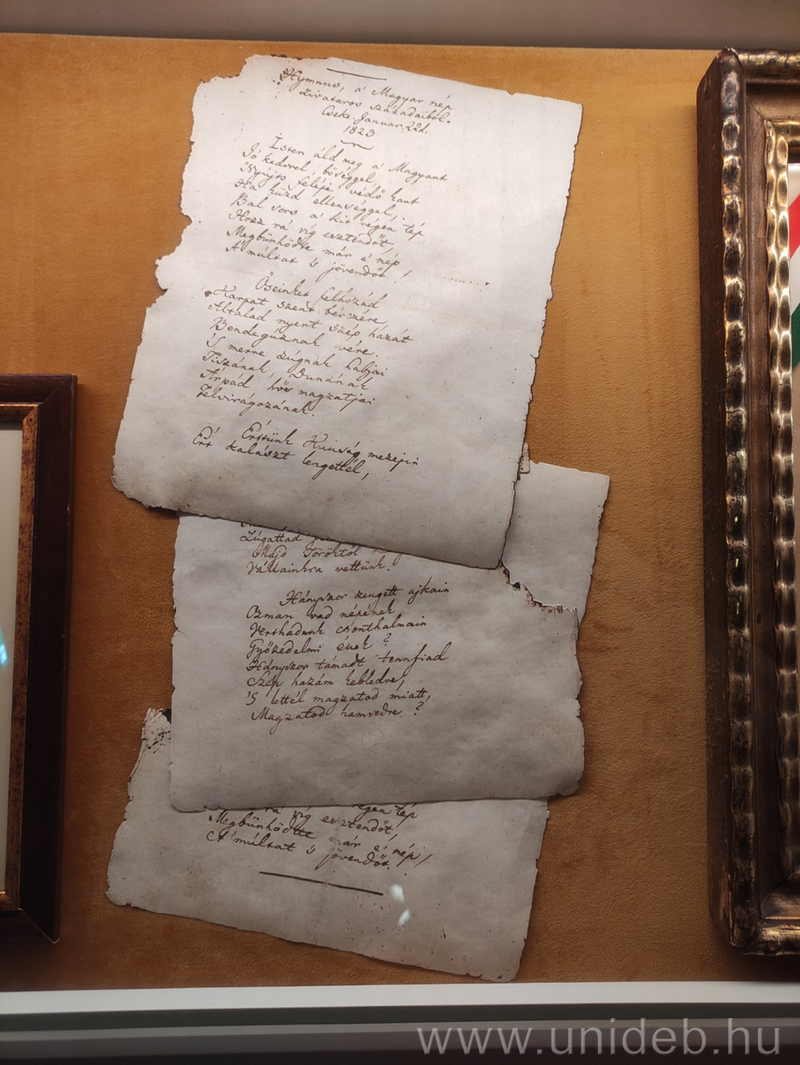 Hymnus, a' Magyar nép
zivataros századaiból.
Cseke Januar. 22d.
1823
Isten áld meg a' Magyart
Jó kedvvel, bőséggel,
Nyújts felépe védő kart
Ha küzd ellenséggel;
Bal sors a' kit régen tép
Hozz rá víg esztendőt,
Megbűnhödte már e' nép
A' múltat 's jövendőt!
Őseinket felhozád
Kárpát szent bérczére
Általad nyert szép hazát
Bendegúznak vére.
'S merre zúgnak habjai
Tiszának, Dunának
Árpád hős magzatjai
Felvirágozának.
Értünk Kunság mezején
Ért kalászt lengettél,
Zúgattad
Majd Töröktől
Vállainkra vettünk.
Hányszor zengett ajkain
Ozman vad népének
Vert hadunk csonthalmain
Győzedelmi ének?
Hányszor támadt tennfiad
Szép hazám kebledre,
'S lettél magzatod miatt,
Magzatod hamvedre?
rá víg esztendőt,
régen tép
Megbűnhödte már e' nép
A' múltat 's jövendőt.
www.unideb.hu